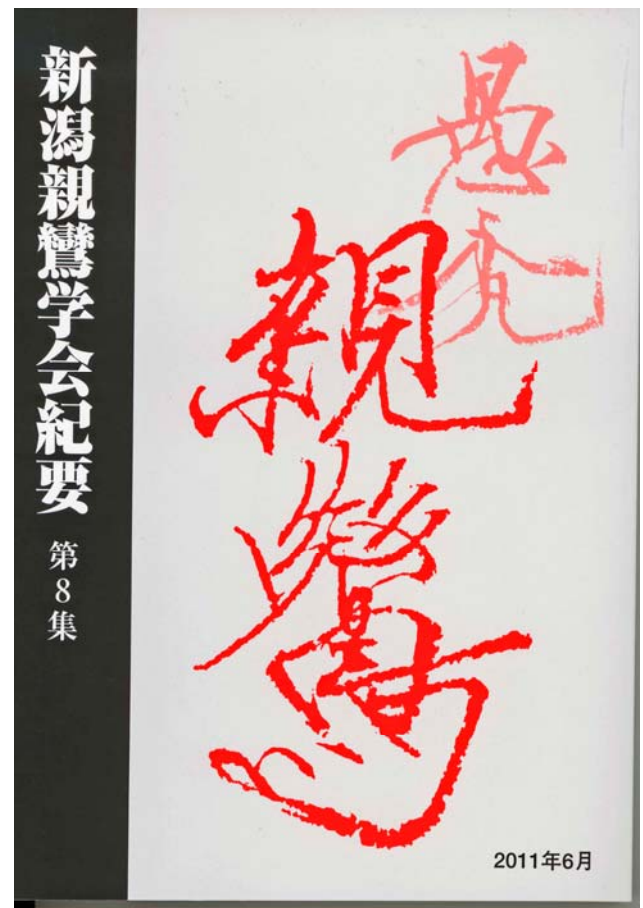 新潟親鸞学会紀要 第8集
愚禿
親鸞
2011年6月